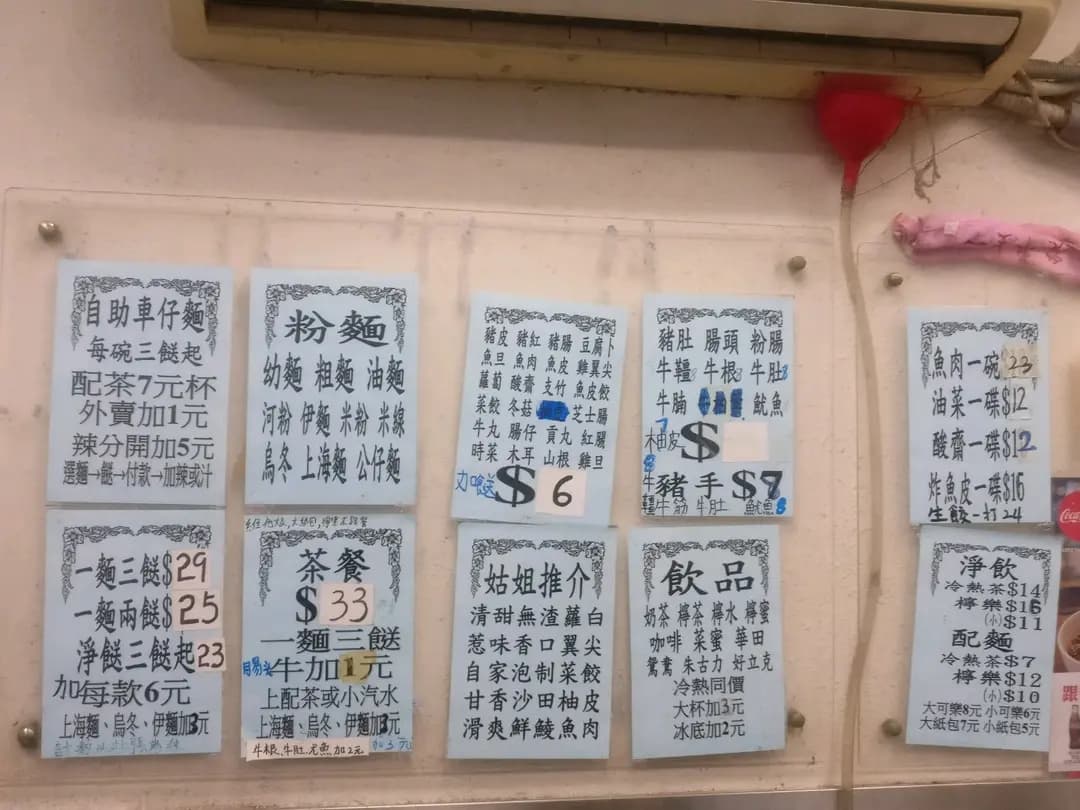 自助車仔麵
每碗三餸起
配茶7元杯
外賣加1元
辣分開加5元
選麵→餸→付款→加辣或汁
粉麵
幼麵 粗麵 油麵
河粉 伊麵 米粉 米線
烏冬 上海麵 公仔麵
豬皮 豬紅 豬腸 豆腐卜
魚旦 魚肉 魚皮 雞翼尖
蘿蔔 酸齋 支竹 魚皮餃
菜餃 冬菇 芝士腸
牛丸 腸仔 貢丸 紅腸
時菜 木耳 山根 雞旦
加餸 $6
豬肚 腸頭 粉腸
牛韁 牛根 牛肚8
牛腩 魷魚
7
柚皮 $
8
豬手 $7
牛筋 牛肚 魷魚8
魚肉一碗23
油菜一碟$12
酸齋一碟$12
炸魚皮一碟$16
生餃一打24
一麵三餸$29
一麵兩餸$25
淨餸三餸起23
加每款6元
上海麵、烏冬、伊麵加3元
茶餐
$33
一麵三餸
牛加1元
上配茶或小汽水
上海麵、烏冬、伊麵加3元
牛根、牛肚、尤魚加2元
加3元
姑姐推介
清甜無渣蘿白
惹味香口翼尖
自家泡制菜餃
甘香沙田柚皮
滑爽鮮鯪魚肉
飲品
奶茶 檸茶 檸水 檸蜜
咖啡 菜蜜 華田
鴛鴦 朱古力 好立克
冷熱同價
大杯加3元
冰底加2元
淨飲
冷熱茶$14
檸樂$16
(小)$11
配麵
冷熱茶$7
檸樂$12
(小)$10
大可樂8元 小可樂6元
大紙包7元 小紙包5元
跟